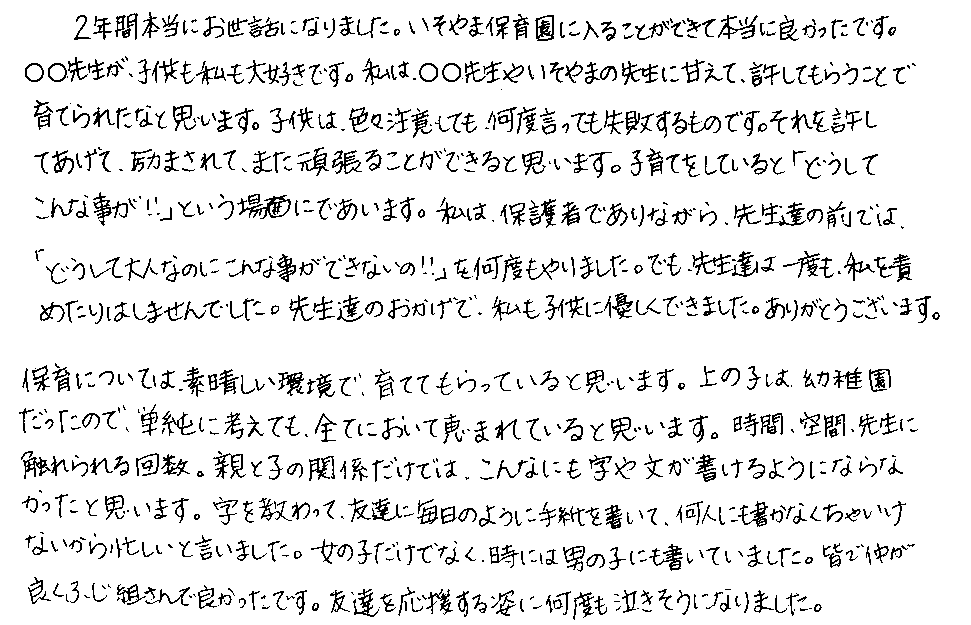 2年間本当にお世話になりました。いそやま保育園に入ることができて本当に良かったです。
〇〇先生が、子供も私も大好きです。私は、〇〇先生やいそやまの先生に甘えて、許してもらうことで
育てられたなと思います。子供は、色々注意しても、何度言っても失敗するものです。それを許し
てあげて、励まされて、また頑張ることができると思います。子育てをしていると「どうして
こんな事が!!」という場面にであいます。私は、保護者でありながら、先生達の前では、
「どうして大人なのにこんな事ができないの!!」を何度もやりました。でも、先生達は一度も、私を責
めたりはしませんでした。先生達のおかげで、私も子供に優しくできました。ありがとうございます。
保育については、素晴しい環境で、育ててもらっていると思います。上の子は、幼稚園
だったので、単純に考えても、全てにおいて恵まれていると思います。時間、空間、先生に
触れられる回数。親と子の関係だけでは、こんなにも字や文が書けるようにならな
かったと思います。字を教わって、友達に毎日のように手紙を書いて、何人にも書かなくちゃいけ
ないから忙しいと言いました。女の子だけでなく、時には男の子にも書いていました。皆で仲が
良くふじ組さんで良かったです。友達を応援する姿に何度も泣きそうになりました。